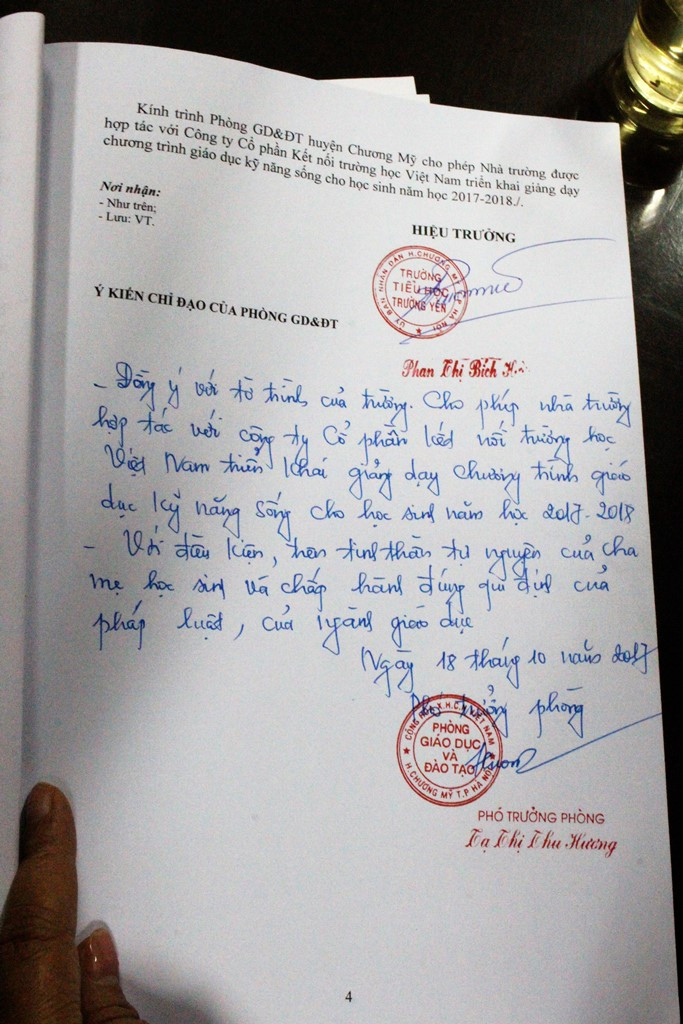 Kính trình Phòng GD&ĐT huyện Chương Mỹ cho phép Nhà trường được
hợp tác với Công ty Cổ phần Kết nối trường học Việt Nam triển khai giảng dạy
chương trình giáo dục kỹ năng sống cho học sinh năm học 2017-2018./.
Nơi nhận:
- Như trên;
- Lưu: VT.
HIỆU TRƯỞNG
ỦY BAN NHÂN DÂN H.CHƯƠNG MỸ T.P HÀ NỘI
TRƯỜNG
TIỂU HỌC
TRƯỜNG YÊN
Phan Thị Bích
Ý KIẾN CHỈ ĐẠO CỦA PHÒNG GD&ĐT
- Đồng ý với tờ trình của trường. Cho phép nhà trường
hợp tác với công ty Cổ phần kết nối trường học
Việt Nam triển khai giảng dạy chương trình giáo
dục kỹ năng sống cho học sinh năm học 2017-2018
- Với điều kiện, trên tinh thần tự nguyện của cha
mẹ học sinh và chấp hành đúng qui định của
pháp luật, của ngành giáo dục
Ngày 18 tháng 10 năm 2017
Phó trưởng phòng
CỘNG HÒA X.H.C.N VIỆT NAM
PHÒNG
GIÁO DỤC
VÀ
ĐÀO TẠO
H.CHƯƠNG MỸ T.P HÀ NỘI
PHÓ TRƯỞNG PHÒNG
Tạ Thị Thu Hương
4